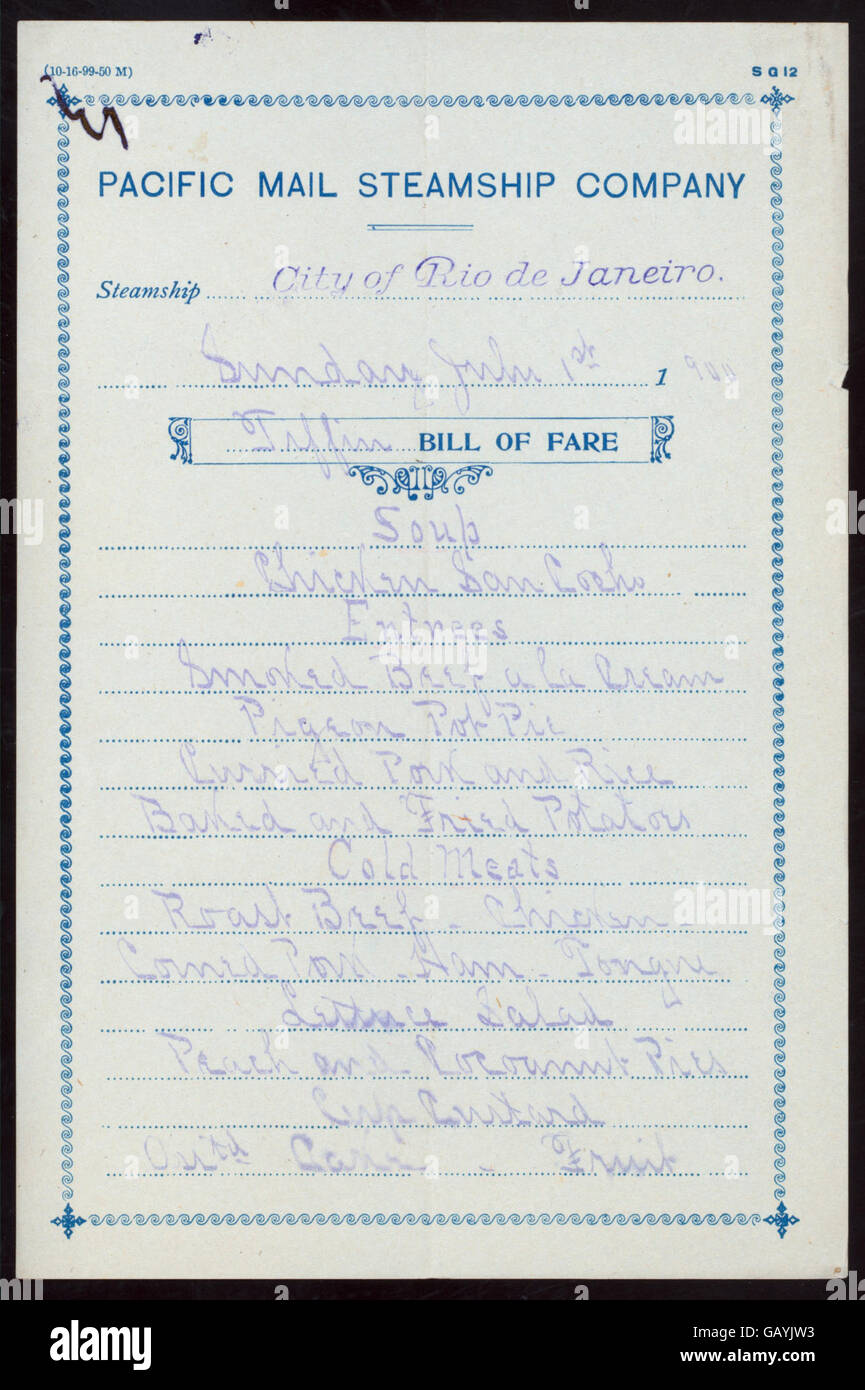 (10-16-99-50 M) S G 12
PACIFIC MAIL STEAMSHIP COMPANY
Steamship City of Rio de Janeiro.
Sunday July 1st 1900
Tiffin BILL OF FARE
Soup
Chicken San Cocho
Entrees
Smoked Beef a la Cream
Pigeon Pot Pie
Curried Pork and Rice
Baked and Fried Potatoes
Cold Meats
Roast Beef - Chicken -
Corned Pork - Ham - Tongue
Lettuce Salad
Peach and Cocoanut Pies
Cup Custard
Cake - Fruit
alamy
Image ID: GAYJW3
www.alamy.com